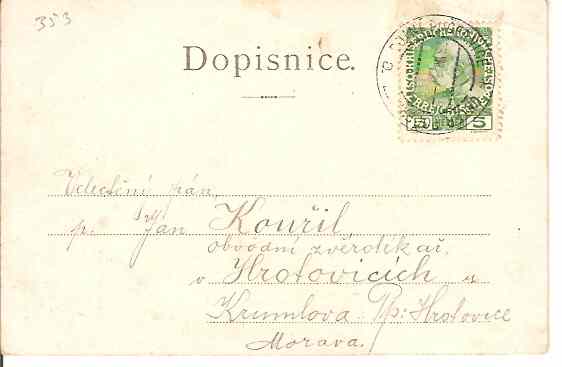 353
Dopisnice.
Veletěný pán,
p. Jan Kouřil,
obvodní zvěrolékař,
v Hrotovicích u
Krumlova P.p: Hrotovice
Morava.
5